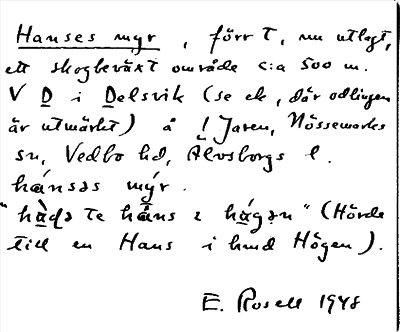 Hanses myr, förr T, nu utlagt,
ett skogbeväxt område c:a 500 m.
V D i Delsvik (se ek, där odlingen
är utmärkt) å ! Jaren, Nössemarks
sn, Vedbo hd, Älvsborgs l.
hánsəs mýr.
"hàdə te háns i hágən" (Hörde
till en Hans i hmd Högen).
E. Rosell 1948